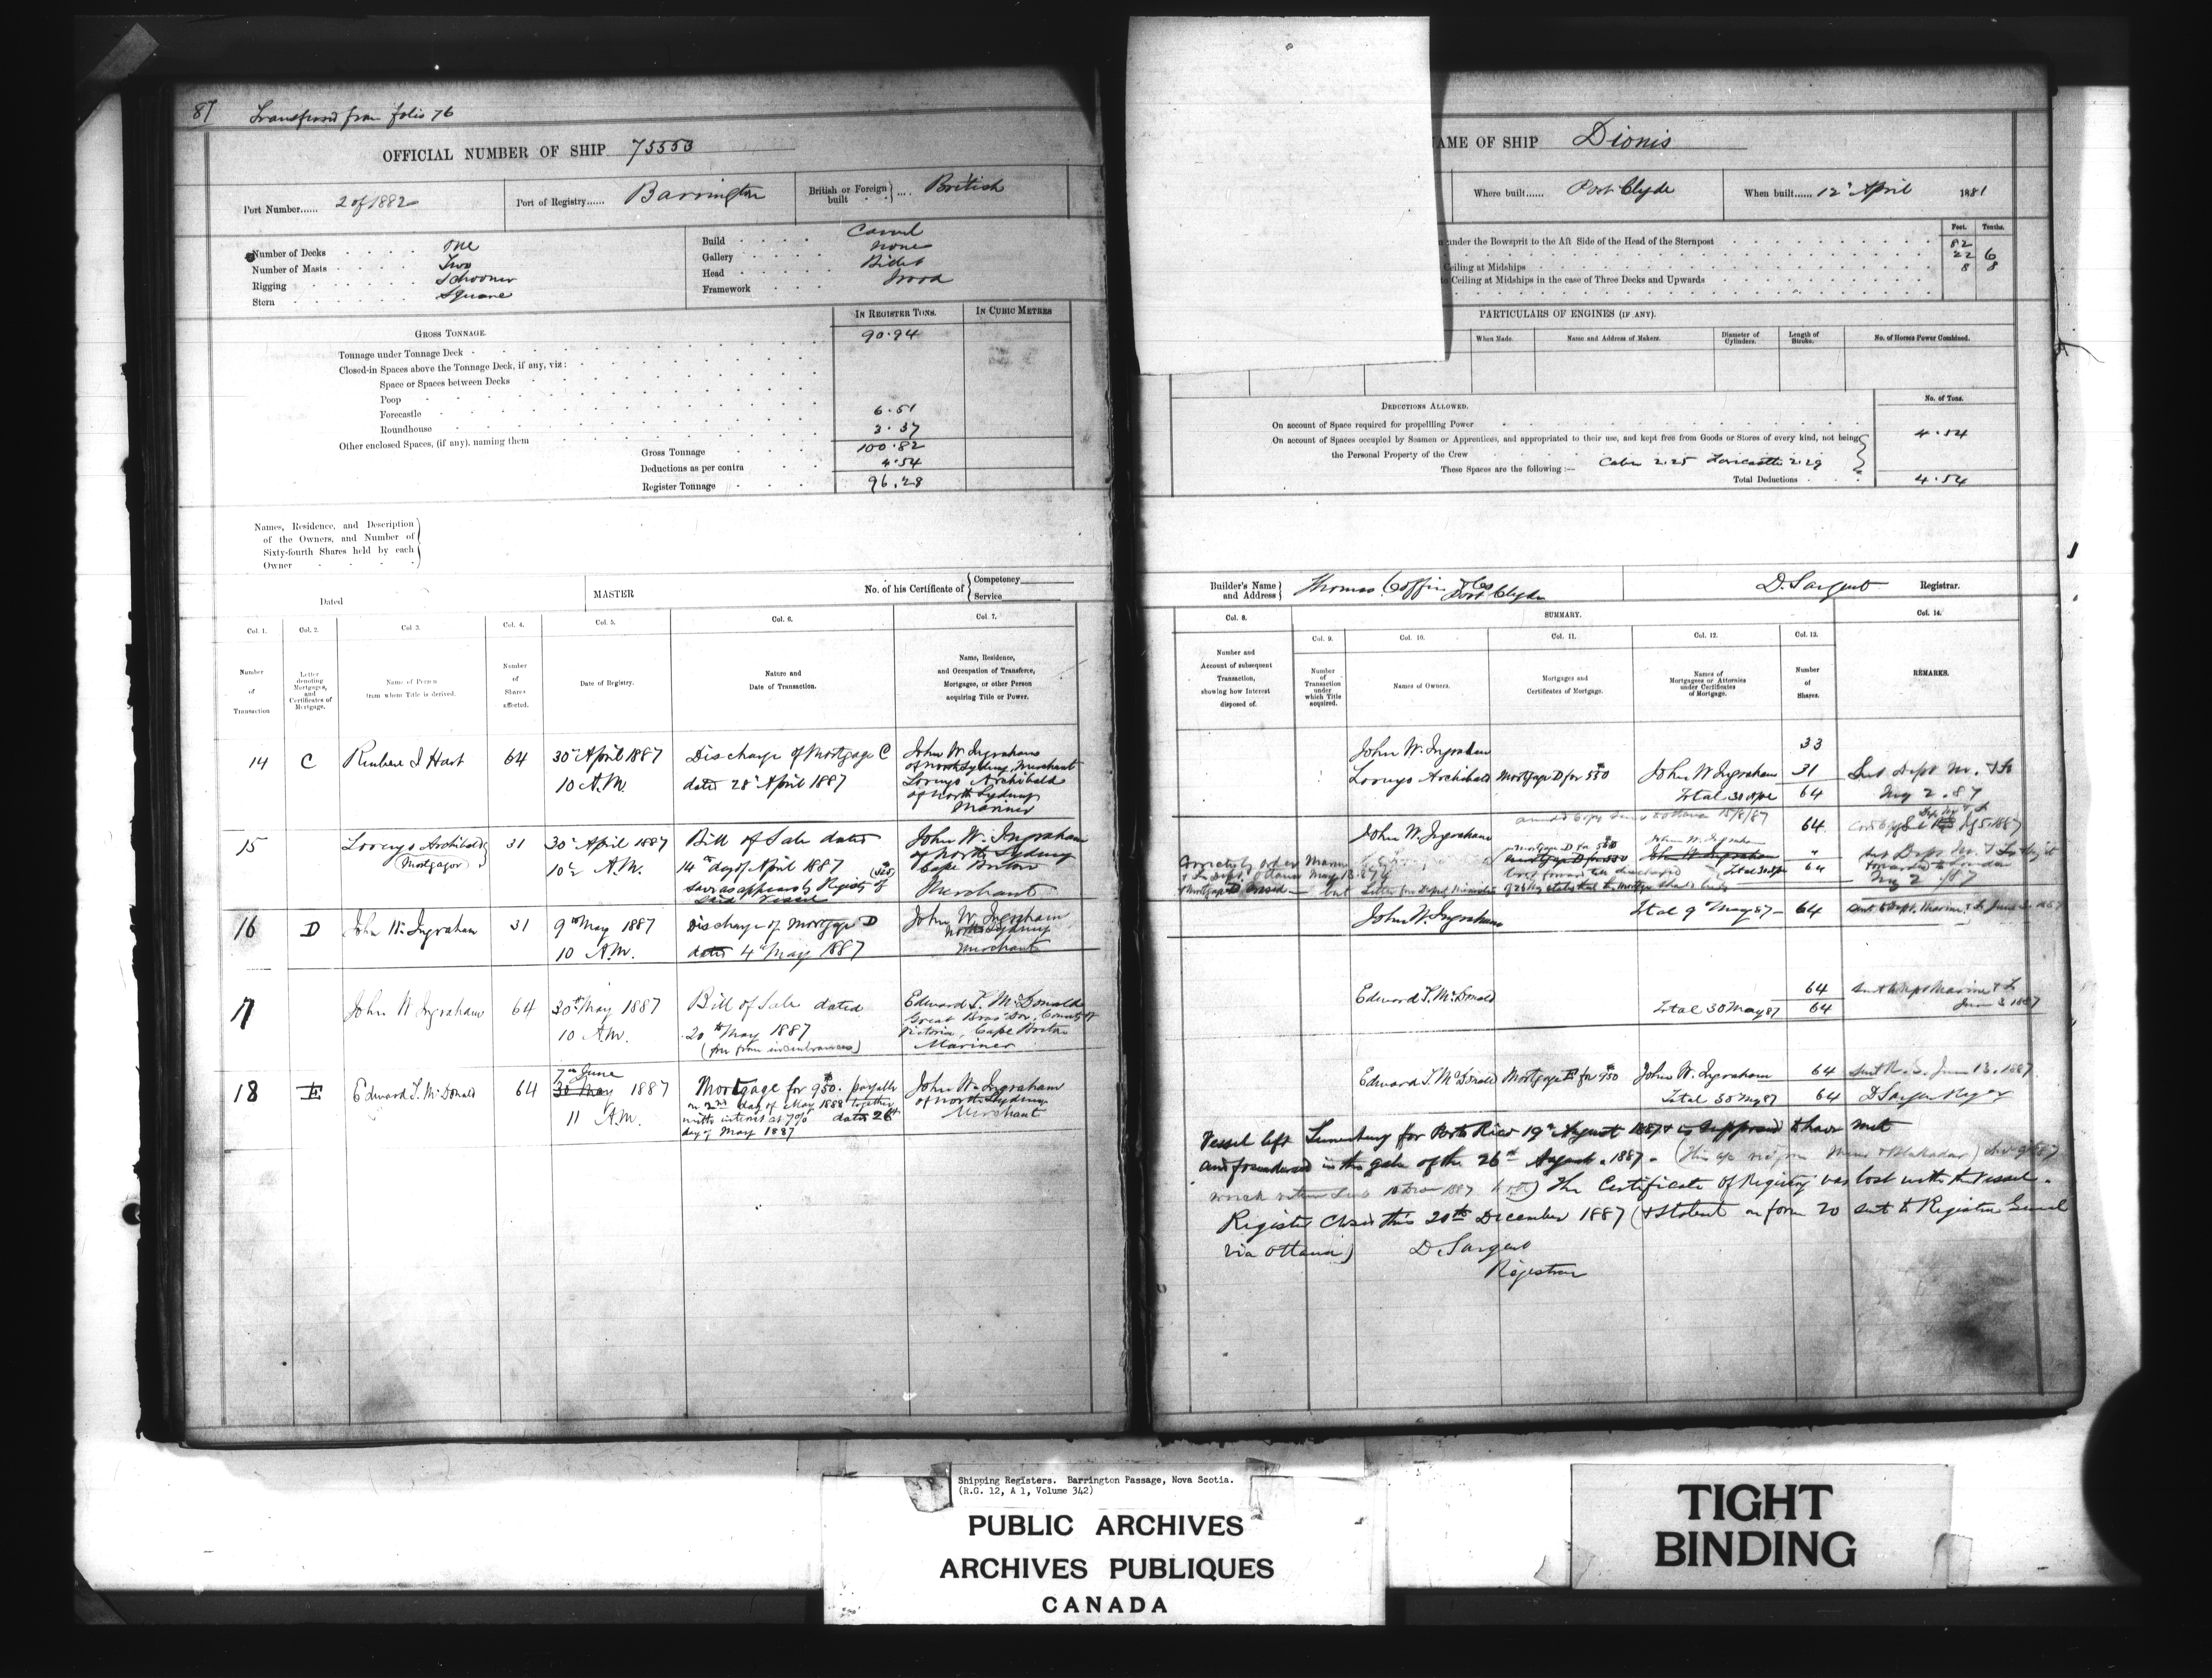 87 Transferred from folio 76
OFFICIAL NUMBER OF SHIP 75553
Port Number...... 2 of 1882
Port of Registry...... Barrington
British or Foreign built .... British
Number of Decks One
Number of Masts Two
Rigging Schooner
Stern Square
Build Carvel
Gallery None
Head Billet
Framework Wood
GROSS TONNAGE.
IN REGISTER TONS.
IN CUBIC METRES
Tonnage under Tonnage Deck 90.94
Closed-in Spaces above the Tonnage Deck, if any, viz:
Space or Spaces between Decks
Poop
Forecastle 6.51
Roundhouse 3.37
Other enclosed Spaces, (if any), naming them
Gross Tonnage 100.82
Deductions as per contra 4.54
Register Tonnage 96.28
Names, Residence, and Description
of the Owners, and Number of
Sixty-fourth Shares held by each
Owner
Dated
MASTER
No. of his Certificate of { Competency
Service
Col. 1. Col. 2. Col. 3. Col. 4. Col. 5. Col. 6. Col. 7.
Number of Transaction
Letter denoting Mortgages, and Certificates of Mortgage.
Name of Person from whom Title is derived.
Number of Shares affected.
Date of Registry.
Nature and Date of Transaction.
Name, Residence, and Occupation of Transferee, Mortgagee, or other Person acquiring Title or Power.
14 C Reubene I Hart 64 30th April 1887 Discharge of Mortgage C John W. Ingraham
10 A.M. dated 28th April 1887 of North Sydney, Merchant
Lorenzo Archibald
of North Sydney
Mariner
15 Lorenzo Archibald 31 30th April 1887 Bill of Sale dated John W. Ingraham
(Mortgagor) 10½ A.M. 14th day of April 1887 of North Sydney
save as appears by Registry of Cape Breton
said Vessel Merchant
16 D John W. Ingraham 31 9th May 1887 Discharge of Mortgage D John W. Ingraham
10 A.M. dated 4th May 1887 North Sydney
Merchant
17 John W Ingraham 64 30th May 1887 Bill of Sale dated Edward T. McDonald
10 A.M. 20th May 1887 Great Bras Dor, County of
(free from incumbrances) Victoria, Cape Breton
Mariner
7th June
18 E Edward T. McDonald 64 30 May 1887 Mortgage for $950. payable John W. Ingraham
11 A.M. on 2nd day of May 1888 together of North Sydney
with interest at 7% dated 26th Merchant
day of May 1887
NAME OF SHIP Dionis
Where built...... Port Clyde
When built...... 12th April 1881
Feet. Tenths.
under the Bowsprit to the Aft Side of the Head of the Sternpost 82
22 6
Ceiling at Midships 8 8
to Ceiling at Midships in the case of Three Decks and Upwards
PARTICULARS OF ENGINES (IF ANY).
When Made.
Name and Address of Makers.
Diameter of Cylinders.
Length of Stroke.
No. of Horses Power Combined.
DEDUCTIONS ALLOWED.
No. of Tons.
On account of Space required for propelling Power
On account of Spaces occupied by Seamen or Apprentices, and appropriated to their use, and kept free from Goods or Stores of every kind, not being 4.54
the Personal Property of the Crew
These Spaces are the following :— Cabin 2.25 Forecastle 2.29
Total Deductions 4.54
Builder's Name and Address } Thomas Coffin & Co Port Clyde
D. Sargent Registrar.
SUMMARY.
Col. 8. Col. 9. Col. 10. Col. 11. Col. 12. Col. 13. Col. 14.
Number and Account of subsequent Transaction, showing how Interest disposed of.
Number of Transaction under which Title acquired.
Names of Owners.
Mortgages and Certificates of Mortgage.
Names of Mortgagees or Attornies under Certificates of Mortgage.
Number of Shares.
REMARKS.
John W. Ingraham 33
Lorenzo Archibald Mortgage D for 550 John W. Ingraham 31 Sent Dept M. & F
Total 30 Apl 64 May 2. 87
John W. Ingraham 64
Mortgage D for 550 John W. Ingraham
Total 64
May 2 /87
John W. Ingraham Total 9th May 87 — 64
Edward T. McDonald 64 Sent Dept Marine & F
Total 30 May 87 64 June 3 1887
Edward T. McDonald Mortgage E for $950 John W. Ingraham 64 June 13. 1887
Total 30 My 87 64 D Sargent Reg
Vessel left Lunenburg for Porto Rico 19th August 1887 & is supposed to have met
and foundered in the gale of the 26th August. 1887.
The Certificate of Registry was lost with the Vessel.
Register Closed this 20th December 1887 (& Statement on form 20 sent to Registrar General
via Ottawa) D. Sargent
Registrar
Shipping Registers. Barrington Passage, Nova Scotia.
(R.G. 12, A 1, Volume 342)
PUBLIC ARCHIVES
ARCHIVES PUBLIQUES
CANADA
TIGHT
BINDING